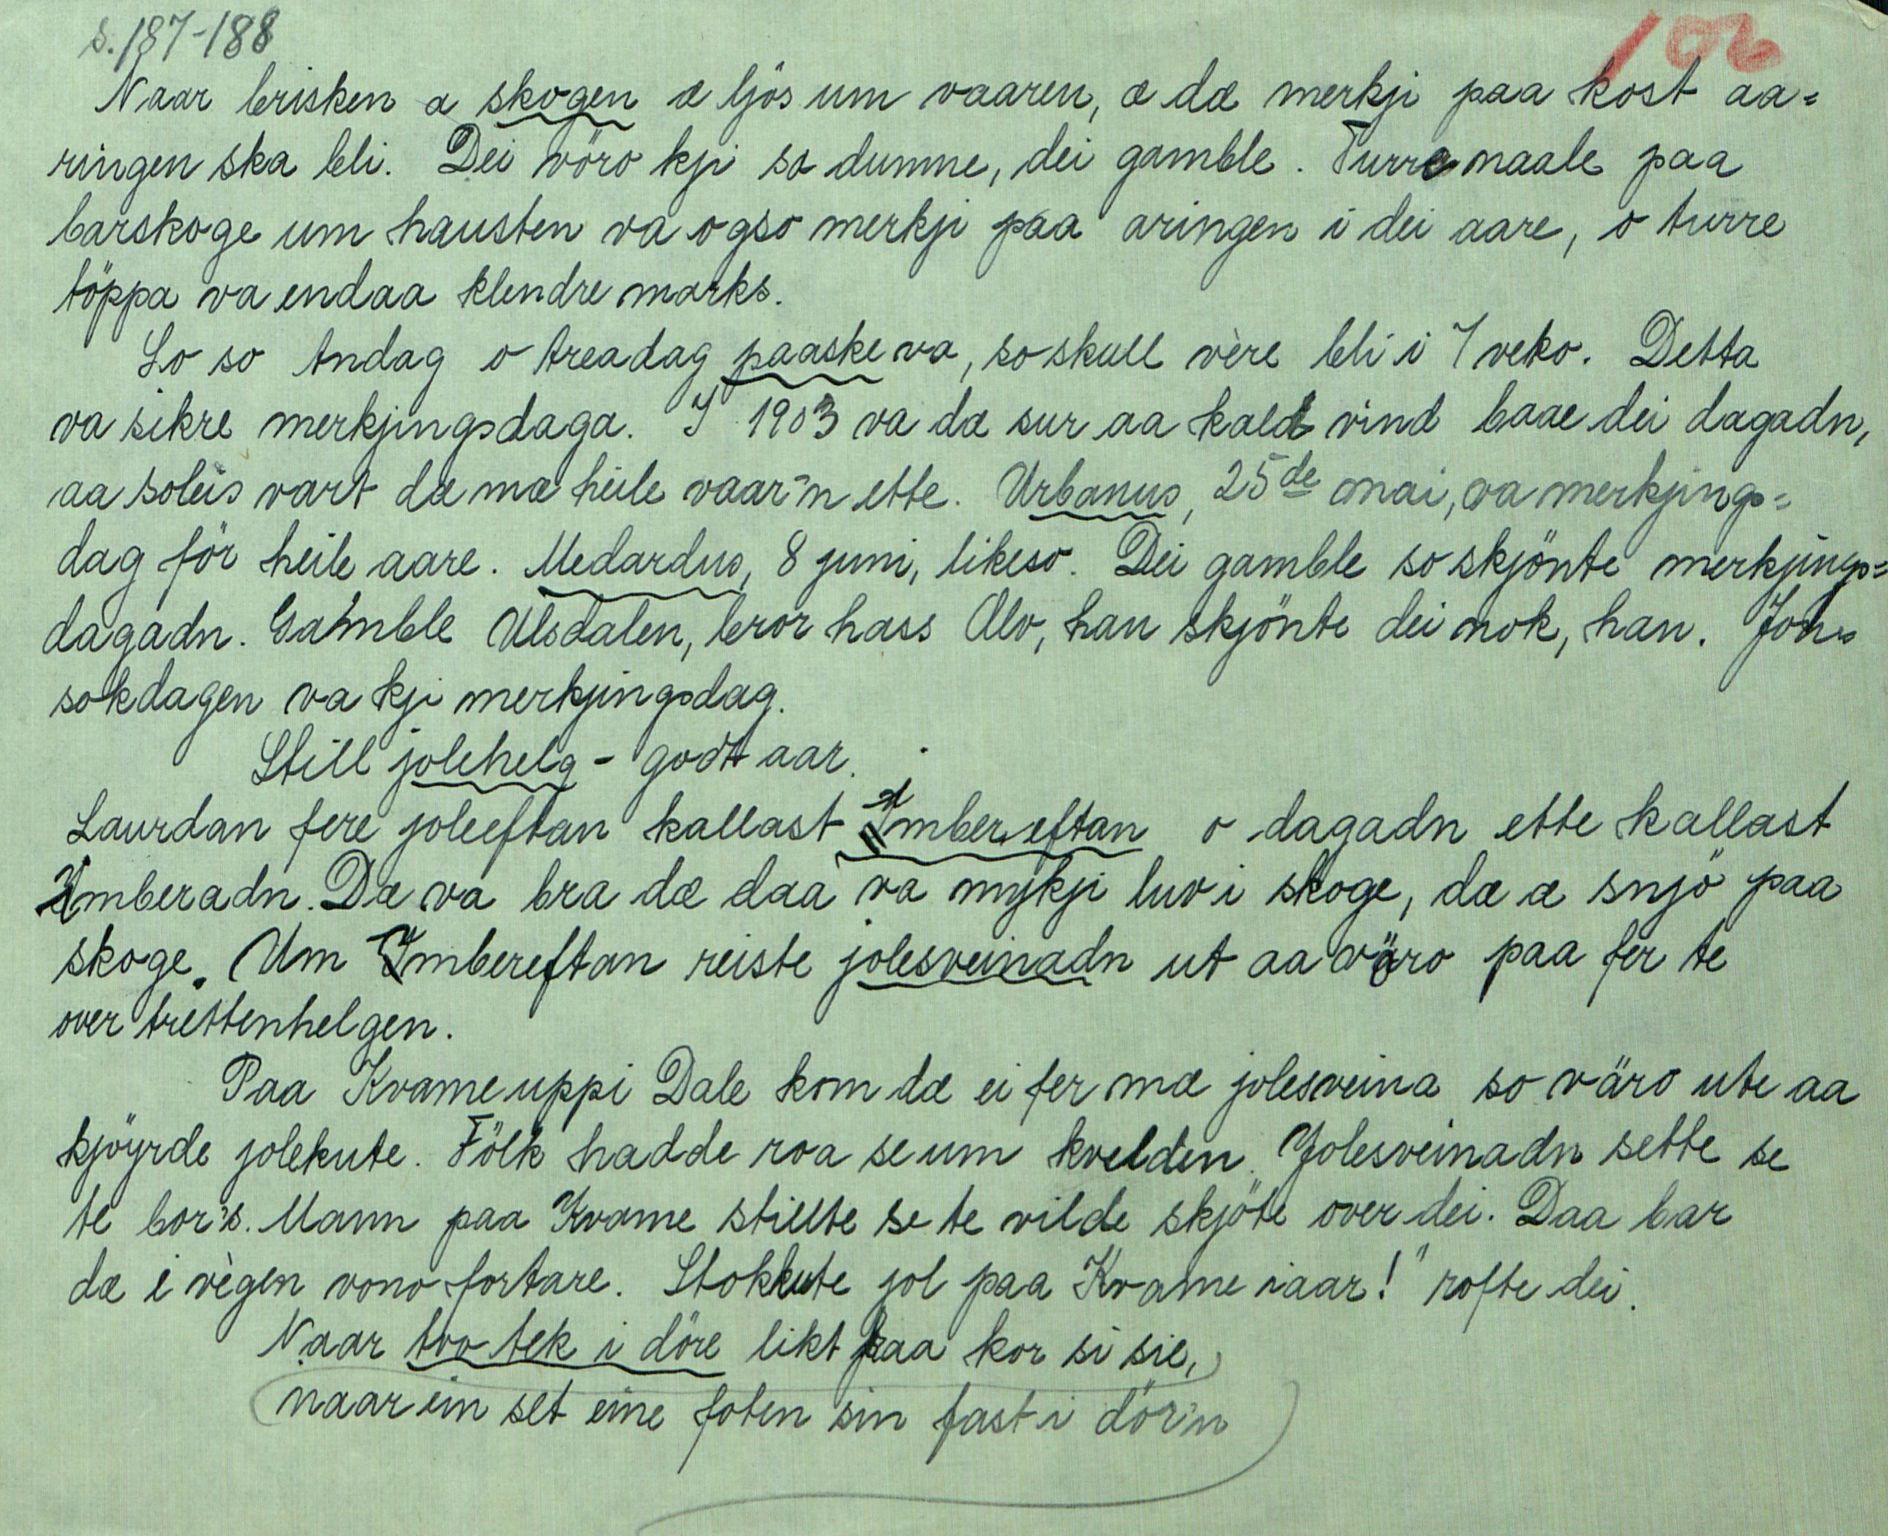 s. 187-188
106
Naar brisken æ skogen æ ljös um vaaren, æ dæ merkji paa kost aa=
ringen ska bli. Dei vöro kji so dumme, dei gamble. Turre naale paa
barskoge um hausten va ogso merkji paa aringen i dei aare, o turre
töppa va endaa klendre marks.
So so Andag o treadag paaske va, so skull vère bli i 7 veko. Detta
va sikre merkjingsdaga. I 1903 va dæ sur aa kald vind baae dei dagadn,
aa soleis vart dæ mæ heile vaar'n ette. Urbanus, 25de mai, va merkjings=
dag för heile aare. Medardus, 8 juni, likeso. Dei gamble so skjönte merkjings=
dagadn. Gamble Ulsdalen, bror hass Alv, han skjönte dei nok, han. Jon=
sokdagen va kji merkjingsdag.
Still jolehelg - godt aar.
Laurdan fere joleeftan kallast Imbereftan o dagadn ette kallast
Imberadn. Dæ va bra dæ daa va mykji luv i skoge, dæ æ snjö paa
skoge. Um Imbereftan reiste jolesveinadn ut aa väro paa fer te
over trettenhelgen.
Paa Kvame uppi Dale kom dæ ei fer mæ jolesveina so väro ute aa
kjöyrde jolekute. Fölk hadde roa se um kvelden. Jolesveinadn sette se
te bor's. Mann paa Kvame stillte se te vilde skjöte over dei. Daa bar
dæ i vègen vono fortare. Stokkute jol paa Kvame iaar!" rofte dei.
Naar tvo tek i döre likt paa kor si sie,
naar ein set eine foten sin fast i dör'n